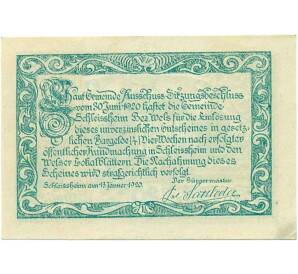 Laut Gemeinde Ausschuss Sitzungsbeschluss
vom 30 Juni 1920 haftet die Gemeinde
Schleissheim Bez Wels für die Einlösung
dieses unverzinslichen Gutscheines in gesetz-
lichen Bargelde / Vier Wochen nach erfolgter
öffentlicher Kundmachung in Schleissheim und den
Welser Lokalblättern. Die Nachahmung dieses
Scheines wird strafgerichtlich verfolgt.
Schleissheim am 1920. Der Bürgermeister